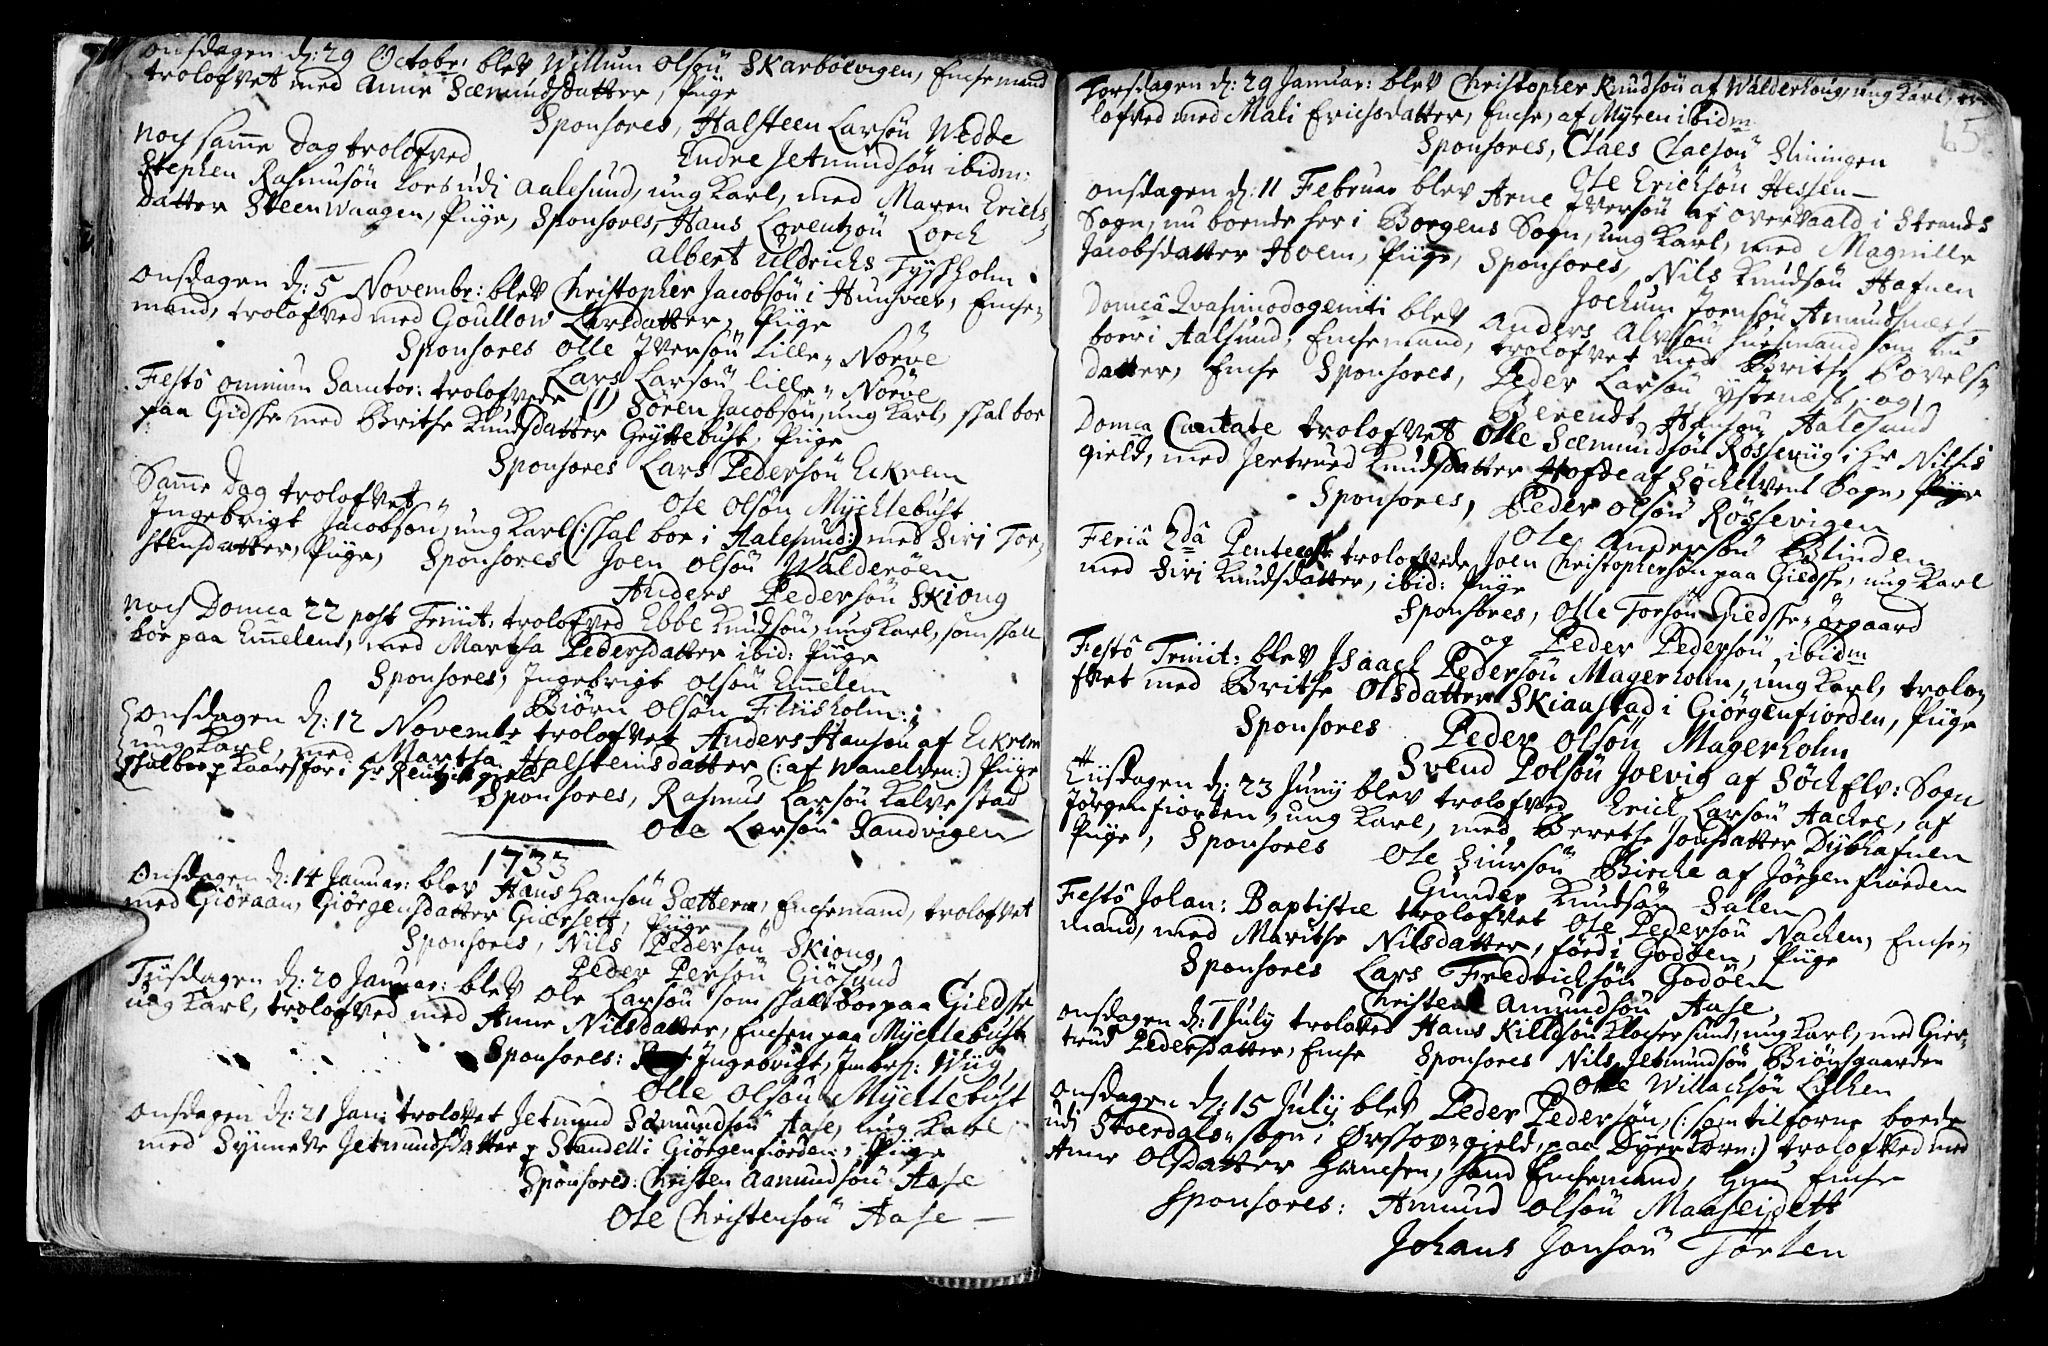 Onsdagen d: 29 Octobr: blev Willum Olsøn Skarbøevigen, Enchemand
trolofvet med Anne Sæmundsdatter, Piige
Sponsores, Halsteen Larsøn Wedde
Endre Jetmundsøn ibidm:
Noch samme Dag trolofved
Stephen Rasmusøn Lors udi Aalesund, ung Karl, med Maren Erichs
datter Steenwaagen, Piige, Sponsores, Hans Lorentzøn Lorch
Albert Uldrichs Tyshholm
Onsdagen d: 5 Novembr: blev Christopher Jacobsøn i Hunsvær, Enche-
mand, trolofved med Goullow Larsdatter, Piige
Sponsores Olle Iversøn Lille-Nørve
Lars Larsøn lille-Nørve
Festô omnium Sanctor: trolofvede (1) Søren Jacobsøn, ung Karl, skal boe
paa Gidsche med Brithe Knudsdatter Gryttebust, Piige
Sponsores Lars Pedersøn Eckrem
Ole Olsøn Mychlebust
Samme Dag trolofvet
Ingebrigt Jacobsøn, ung Karl (: skal boe i Aalesund:) med Siri Tor-
stensdatter, Piige, Sponsores Joen Olsøn Walderøen
Anders Pedersøn Skiong
Noch Domca 22 post Trinit: trolofved Ebbe Knudsøn, ung Karl, som skall
boe paa Emelem, med Martha Pedersdatter ibid: Piige
Sponsores, Ingebrigt Olsøn Emelem
Biørn Olsøn Fliisholm:
Onsdagen d: 12 Novembr trolofvet Anders Hansøn af Eckrem
ung Karl, med Martha Halsteinsdatter (: af Wanelven:) Piige
skal boe p Kaarsfor i Hr Rentzis gield
Sponsores, Rasmus Larsøn Kalvestad
Ole Larsøn Sandvigen
1733
Onsdagen d: 14 Januar: blev Hans Hansøn Sætteren, Enchemand, trolofvet
med Giøraan Giørgensdatter Giørsett, Piige
Sponsores, Nils Pedersøn Skiong,
Peder Persøn Giøsund
Tiisdagen d: 20 Januar: blev Ole Larsøn som skall boe paa Giedsche
ung Karl, trolofved med Anne Nilsdatter, Enchen paa Mychlebust
Sponsores: Ingebricht Imbrs: Wiig,
Olle Olsøn Mychlebust
Onsdagen d: 21 Jan: trolovet Jetmund Sæmundsøn Aase, ung Karl
med Synneve Jetmundsdatter p Standell i Giørgenfiorden, Piige
Sponsores: Christen Aamundsøn Aase
Ole Christensøn Aase
65
Torsdagen d: 29 Januar: blev Christopher Knudsøn af Walderhoug, ung Karl, tro-
lofved med Mali Erichsdatter, Enche, af Myren ibidm
Sponsores, Claes Claesøn Sliningen
Ole Erichsøn Hessen
Onsdagen d: 11 Februar blev Arne Iversøn af Overvaald i Strands
Sogn, nu boende her i Borgens Sogn, ung Karl, med Magnille
Jacobsdatter Hoem, Piige, Sponsores, Nils Knudsøn Hafnen
Jochum Jonsøn Amundsnæs
Domcâ Qvasimodogeniti blev Anders Alvsøn huusmand som nu
boer i Aalsund, Enchemand, trolofvet med Brithe Povels-
datter, Enche Sponsores, Peder Larsøn Ystenæs, og
Berendt Hansøn Aalesund
Domca Cantate trolofvet Olle Sæmundsøn Røsseviig i Hr Nilsis
gield, med Jertrued Knudsdatter Hofde af Søchelvens Sogn, Piige
Sponsores, Peder Olsøn Røssevigen
Ole Andersøn Blindem
Feriâ 2dâ Pentecost trolofvede Joen Christophersøn paa Giedsche, ung Karl
med Siri Knudsdatter, ibid: Piige
Sponsores, Olle Torsøn Giedsche-ørgaard
og Peder Pedersøn ibidm
Festô Trinit: blev Isaach Pedersøn Magerholm, ung Karl, trolo-
fvet med Brithe Olsdatter Skianstad i Giørgenfiorden, Piige
Sponsores Peder Olsøn Magerholm
Svend Polsøn Joevig af Søchelv: Sogn
Tiisdagen d: 23 Junij blev trolofved Erich Larsøn Aachre, af
Jørgenfiorden, ung Karl, med Berethe Jonsdatter Dybhafnen
Piige, Sponsores Ole Siursøn Birche af Jørgenfiorden
Gunder Knudsøn Salen
Festô Johan: Baptistæ trolofvet Ole Pedersøn Nachen, Enche-
mand, med Marithe Nilsdatter, førd i Godøen, Piige
Sponsores Lars Fredrichsøn Godøen
Christen Amundsøn Aase
Onsdagen d: 1 July trolovet Hans Killesøn Klochersund, ung Karl, med Gier-
trud Pedersdatter, Enche Sponsores Nils Jetmundsøn Biønsgaarden
Olle Willachsøn Lilhen
Onsdagen d: 15 July blev Peder Pedersøn, (: som tilforne boede
udi Støerdals-sogn i Ørschov-gield, paa Dyerkorn:) trolofved med
Anne Olsdatter Hanesen, hand Enchemand, hun Enche
Sponsores: Amund Olsøn Maaseidett
Johans Jonsøn Tørlen